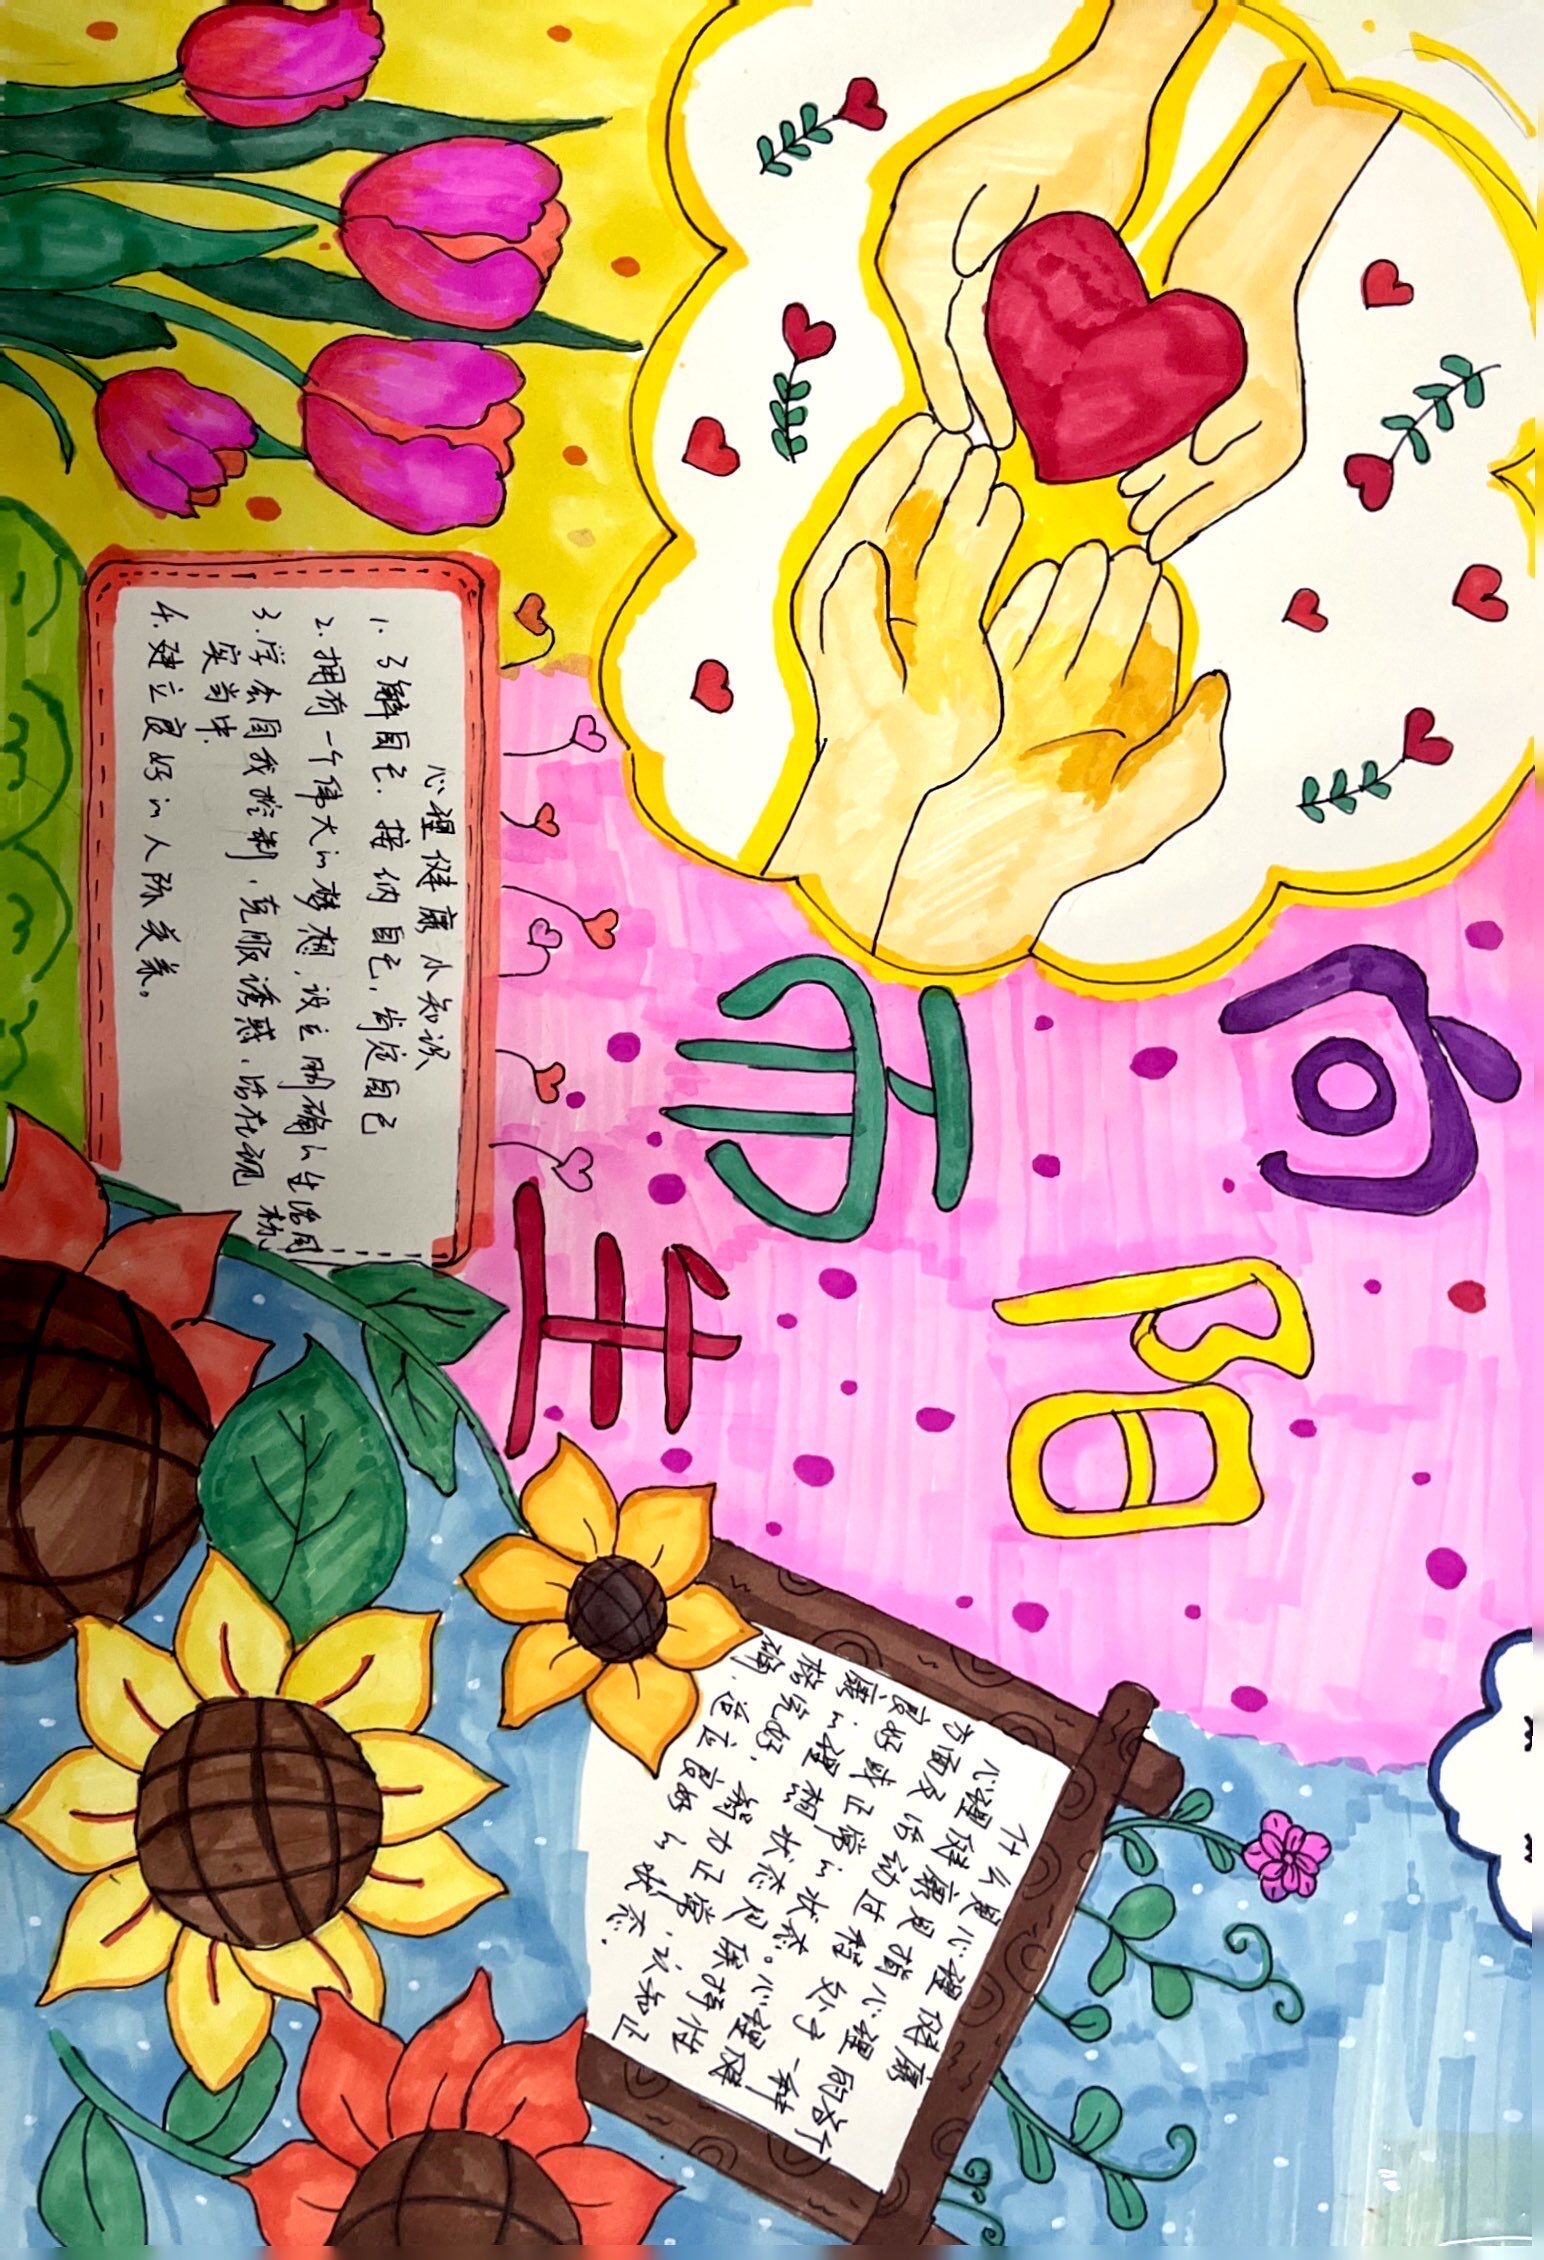 向阳
而生
心理健康小知识
1.了解自己.接纳自己,肯定自己
2.拥有一个伟大的梦想,设立明确的生活目
标
3.学会自我控制,克服诱惑,活在现
实当中.
4.建立良好的人际关系。
什么是心理健康
心理健康是指心理的各个
方面及活动过程处于一种
良好或正常的状态。心理健
康的理想状态是保持性
格完好.智力正常.认知正
确.适应良好的状态.